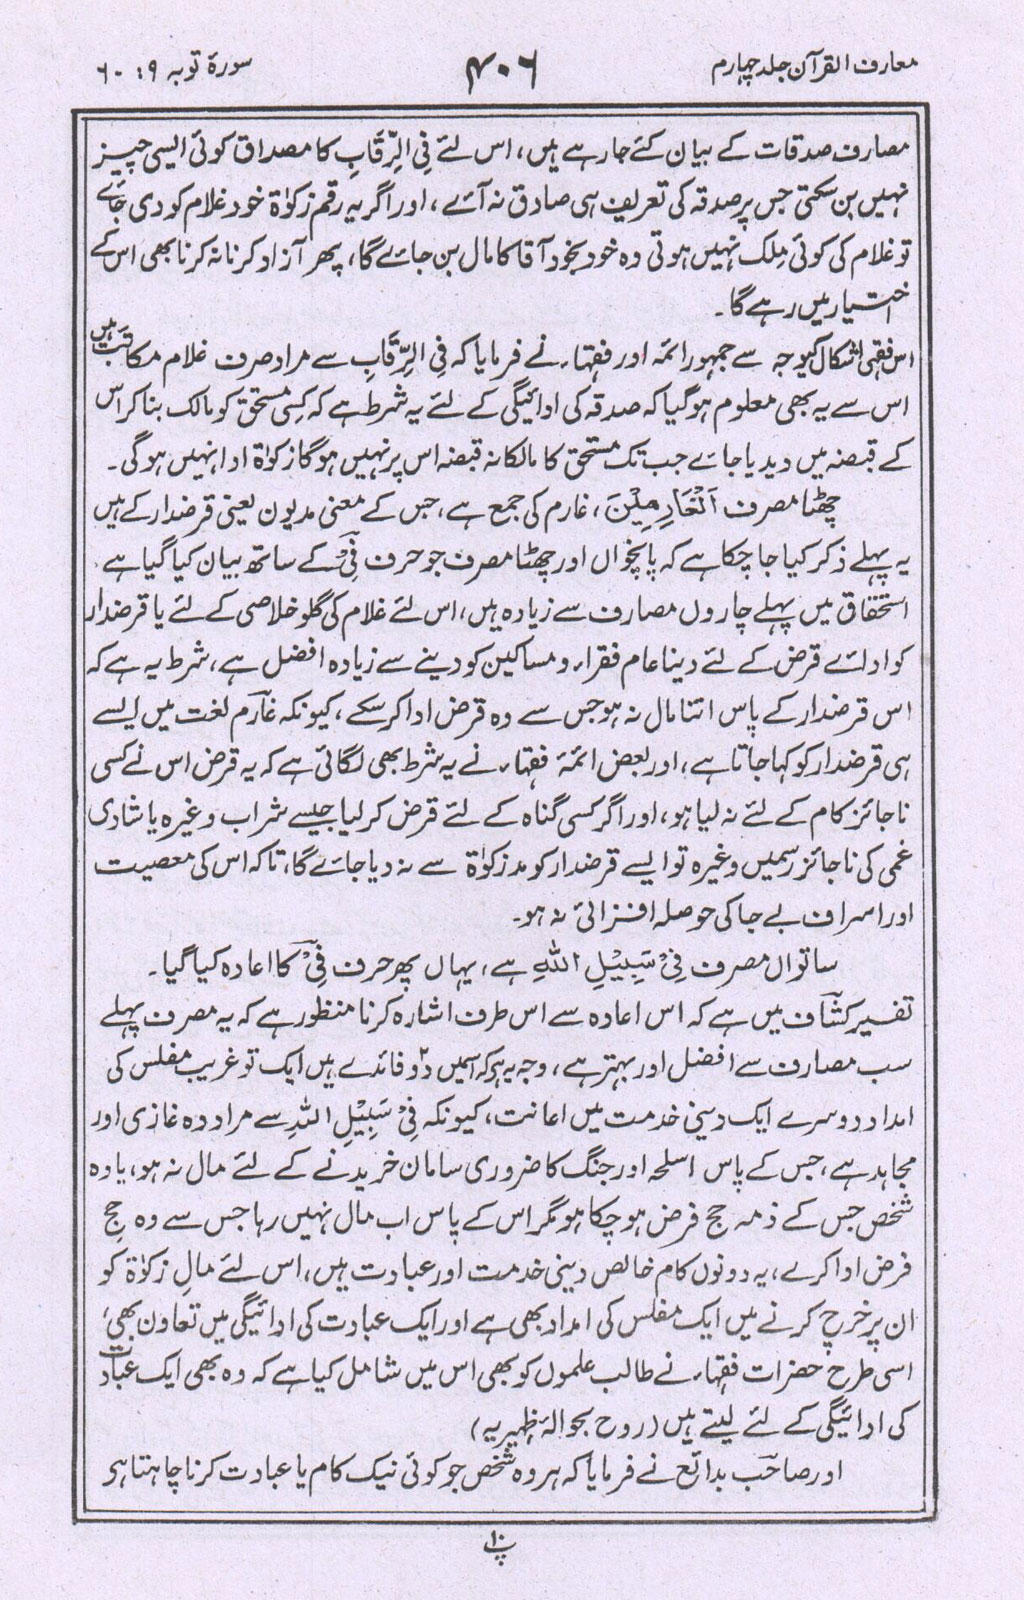 معارف القرآن جلد چہارم
۴۰۶
سورۂ توبہ ۹ : ۶۰
مصارف صدقات کے بیان کئے جا رہے ہیں، اس لئے فِی الرِّقَابِ کا مصداق کوئی ایسی چیز
نہیں بن سکتی جس پر صدقہ کی تعریف ہی صادق نہ آئے، اور اگر یہ رقم زکوٰۃ خود غلام کو دی جائے
تو غلام کی کوئی مِلک نہیں ہوتی وہ خود بخود آقا کا مال بن جائے گا، پھر آزاد کرنا نہ کرنا بھی اس کے
اختیار میں رہے گا۔
اس فقہی اشکال کیوجہ سے جمہور ائمہ اور فقہاء نے فرمایا کہ فِی الرِّقَابِ سے مراد صرف غلام مکاتَب ہیں
اس سے یہ بھی معلوم ہو گیا کہ صدقہ کی ادائیگی کے لئے یہ شرط ہے کہ کسی مستحق کو مالک بنا کر اس
کے قبضہ میں دیدیا جائے جب تک مستحق کا مالکانہ قبضہ اس پر نہیں ہوگا زکوٰۃ ادا نہیں ہوگی۔
چھٹا مصرف اَلْغَارِمِیْنَ، غارم کی جمع ہے، جس کے معنی مدیون یعنی قرضدار کے ہیں
یہ پہلے ذکر کیا جا چکا ہے کہ پانچواں اور چھٹا مصرف جو حرف فِیْ کے ساتھ بیان کیا گیا ہے
استحقاق میں پہلے چاروں مصارف سے زیادہ ہیں، اس لئے غلام کی گلو خلاصی کے لئے یا قرضدار
کو ادائے قرض کے لئے دینا عام فقراء و مساکین کو دینے سے زیادہ افضل ہے، شرط یہ ہے کہ
اس قرضدار کے پاس اتنا مال نہ ہو جس سے وہ قرض ادا کر سکے، کیونکہ غارم لغت میں ایسے
ہی قرضدار کو کہا جاتا ہے، اور بعض ائمۂ فقہاء نے یہ شرط بھی لگائی ہے کہ یہ قرض اس نے کسی
ناجائز کام کے لئے نہ لیا ہو، اور اگر کسی گناہ کے لئے قرض کر لیا جیسے شراب وغیرہ یا شادی
غمی کی ناجائز رسمیں وغیرہ تو ایسے قرضدار کو مد زکوٰۃ سے نہ دیا جائے گا، تاکہ اس کی معصیت
اور اسراف بے جا کی حوصلہ افزائی نہ ہو۔
ساتواں مصرف فِیْ سَبِیْلِ اللہِ ہے، یہاں پھر حرف فِیْ کا اعادہ کیا گیا۔
تفسیر کشاف میں ہے کہ اس اعادہ سے اس طرف اشارہ کرنا منظور ہے کہ یہ مصرف پہلے
سب مصارف سے افضل اور بہتر ہے، وجہ یہ ہر کہ اسمیں دو۲ فائدے ہیں ایک تو غریب مفلس کی
امداد دوسرے ایک دینی خدمت میں اعانت، کیونکہ فِیْ سَبِیْلِ اللہِ سے مراد وہ غازی اور
مجاہد ہے، جس کے پاس اسلحہ اور جنگ کا ضروری سامان خریدنے کے لئے مال نہ ہو، یا وہ
شخص جس کے ذمہ حج فرض ہو چکا ہو مگر اس کے پاس اب مال نہیں رہا جس سے وہ حجِ
فرض ادا کرے، یہ دونوں کام خالص دینی خدمت اور عبادت ہیں، اس لئے مالِ زکوٰۃ کو
ان پر خرچ کرنے میں ایک مفلس کی امداد بھی ہے اور ایک عبادت کی ادائیگی میں تعاون بھی،
اسی طرح حضرات فقہاء نے طالب علموں کو بھی اس میں شامل کیا ہے کہ وہ بھی ایک عبادت
کی ادائیگی کے لئے لیتے ہیں (روح بحوالۂ ظہیریہ)
اور صاحب بدائع نے فرمایا کہ ہر وہ شخص جو کوئی نیک کام یا عبادت کرنا چاہتا ہر
پ۱۰